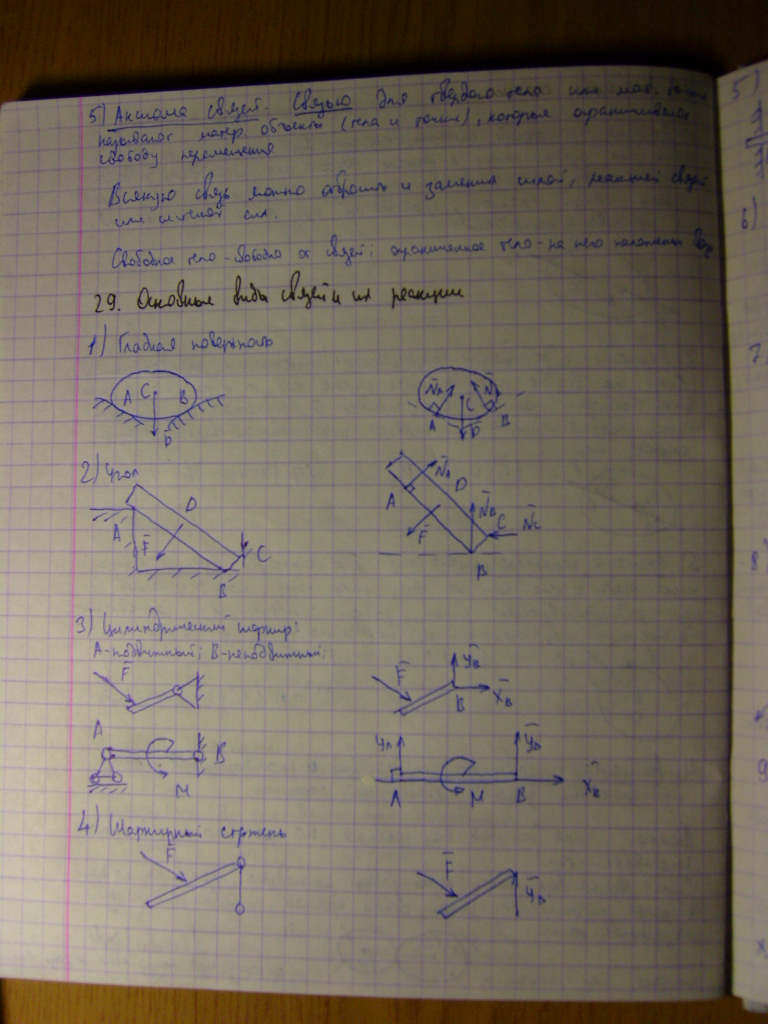 5) Аксиома связей. Связью для твердого тела или мат. точки
называют матер. объекты (тела и точки), которые ограничивают
свободу перемещения
Всякую связь можно отбросить и заменить силой, реакцией связей
или системой сил.
Свободное тело - свободно от связей; ограниченное тело - на него наложены связи
29. Основные виды связей и их реакции
1) Гладкая поверхность
A C B
P
N̄A N̄
C
A P̄ B
2) Угол
A D F̄ C B
N̄A
A D N̄B
F̄ C N̄C
B
3) Цилиндрический шарнир:
A-подвижный; B-неподвижный:
F̄
F̄ ȲB
B X̄B
A B
M
ȲA ȲB
A M B X̄B
4) Шарнирный стержень
F̄
F̄ ȲB
5)
6)
7
8
9